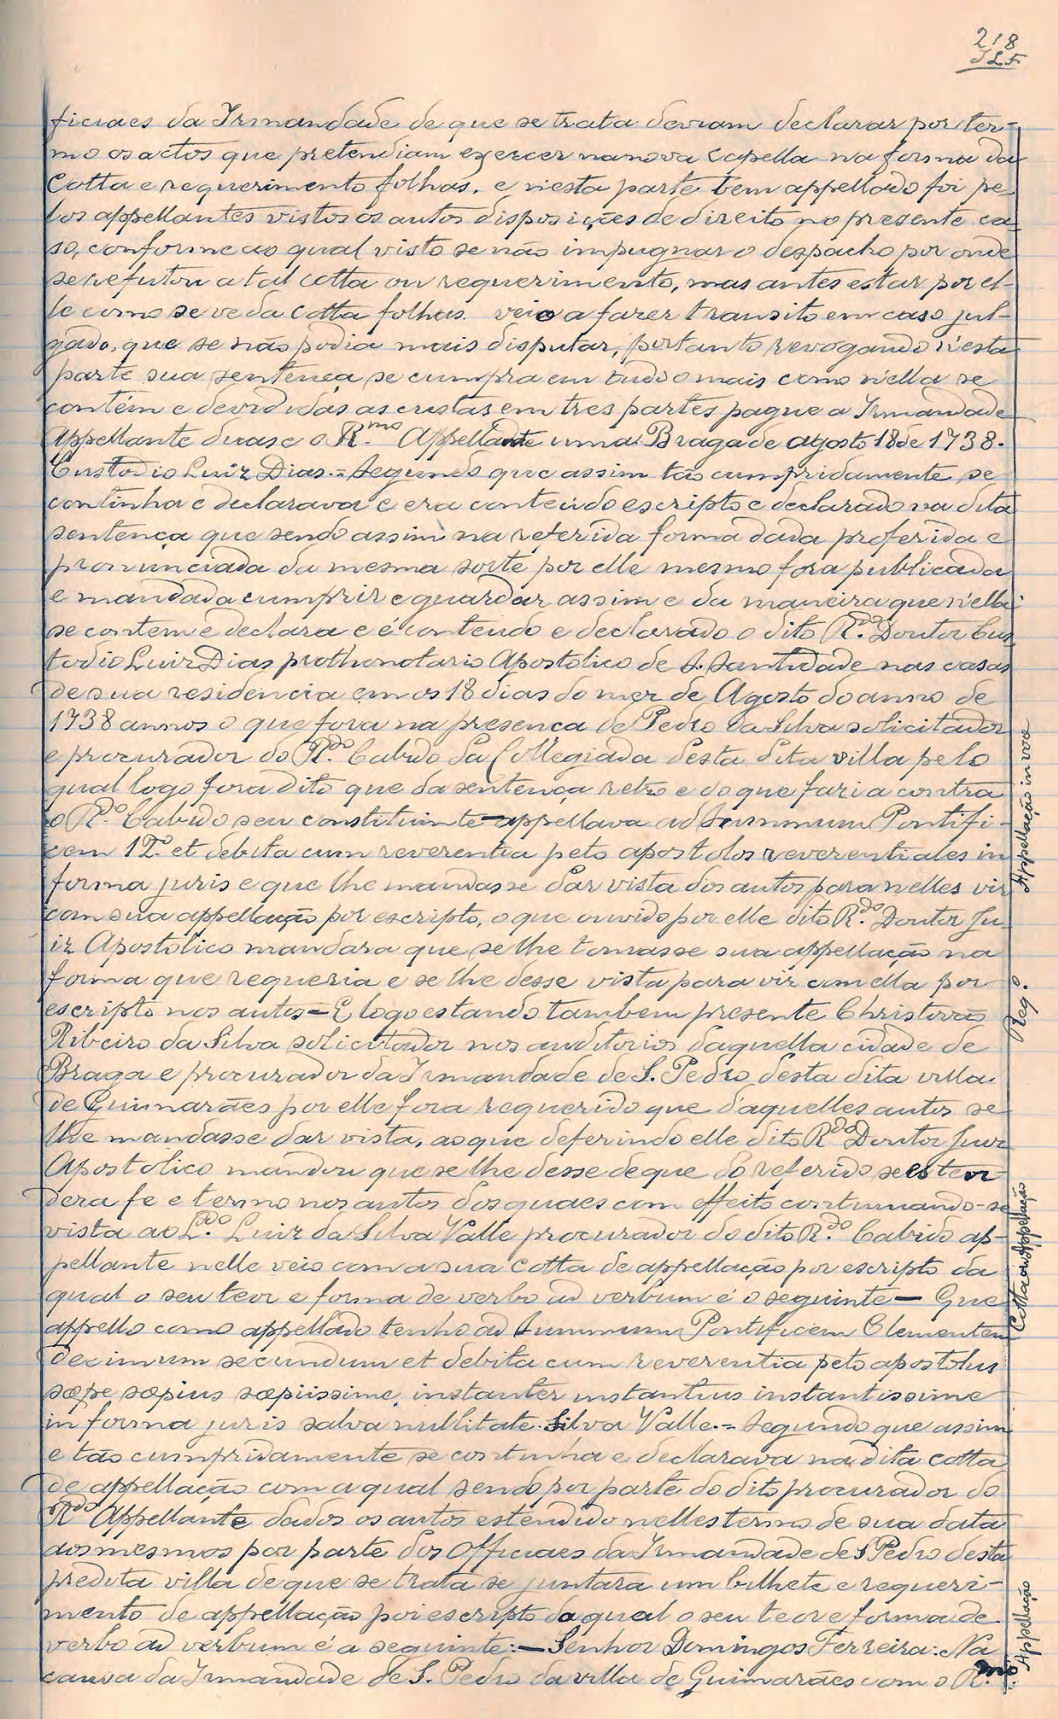 218
ficiaes da Irmandade de que se trata deviam declarar por ter-
mo os actos que pretendiam exercer na nova capella na forma da
Cotta e requerimento folhas, e n'esta parte bem appellado foi pe-
los appellantes vistos os autos disposições de direito no presente ca-
so, conforme ao qual visto se não impugnar o despacho por onde
se refutou a tal cotta ou requerimento, mas antes estar por el-
le como se ve da cotta folhas veio a fazer transito em caso jul-
gado, que se não podia mais disputar, portanto revogando n'esta
parte sua sentença se cumpra em tudo o mais como n'ella se
contém e devididas as custas em tres partes pague a Irmandade
Appellante duas e o R.mo Appellante uma. Braga de agosto 18 de 1738.
Custodio Luiz Dias.= Segundo que assim tão cumpridamente se
continha e declarava e era conteúdo escripto e declarado na dita
sentença que sendo assim na referida forma dada proferida e
pronunciada da mesma sorte por elle mesmo fora publicada
e mandada cumprir e guardar assim e da maneira que n'ella
se contem e declara e é conteudo e declarado o dito R.do Doutor Cus
todio Luiz Dias prothonotario Apostolico de S. Santidade nas casas
de sua residencia em os 18 dias do mez de Agosto do anno de
1738 annos o que fora na presença de Pedro da Silva solicitador
e procurador do R.do Cabido da Collegiada desta dita villa pelo
qual logo fora dito que da sentença retro e do que faria contra
o R.do Cabido seu constituinte appellava ad Summum Pontifi-
cem 12.º et debita cum reverentia peto apostolos reverentiales in
forma juris e que lhe mandasse dar vista dos autos para nelles vir
com sua appellação por escripto, o que ouvido por elle dito R.do Doutor Ju-
iz Apostolico mandara que se lhe tomasse sua appellação na
forma que requeria e se lhe desse vista para vir com ella por
escripto nos autos= E logo estando tambem presente Christovão
Ribeiro da Silva solicitador nos auditorios daquella cidade de
Braga e procurador da Irmandade de S. Pedro desta dita villa
de Guimarães por elle fora requerido que d'aquelles autos se
lhe mandasse dar vista, ao que deferindo elle dito R.do Doutor Juiz
Apostolico mandou que se lhe desse de que do referido se esten
dera fe e termo nos autos dos quaes com effeito continuando-se
vista ao L.do Luiz da Silva Valle procurador do dito R.do Cabido ap-
pellante nelle veio com a sua cotta de appellação por escripto da
qual o seu teor e forma de verbo ad verbum é o seguinte— Que
appello como appellado tenho ad Summum Pontificem Clementem
decimum secundum et debita cum reverentia peto apostolus
sæpe sæpius sæpiissime, instanter instantius instantissime
in forma juris salva nullitate. Silva Valle.= Segundo que assim
e tão cumpridamente se continha e declarava na dita cotta
de appellação com a qual sendo por parte do dito procurador do
R.do Appellante dados os autos estendido nelles termo de sua data
aos mesmos por parte dos Officiaes da Irmandade de S Pedro desta
predita villa de que se trata se juntara um bilhete e requeri-
mento de appellação por escripto do qual o seu teor e forma de
verbo ad verbum é a seguinte:— Senhor Domingos Ferreira: Na
causa da Irmandade de S. Pedro da villa de Guimarães com o R.mo
Appellação in voce
Req.º
Cotta ou Appellação
Appellação